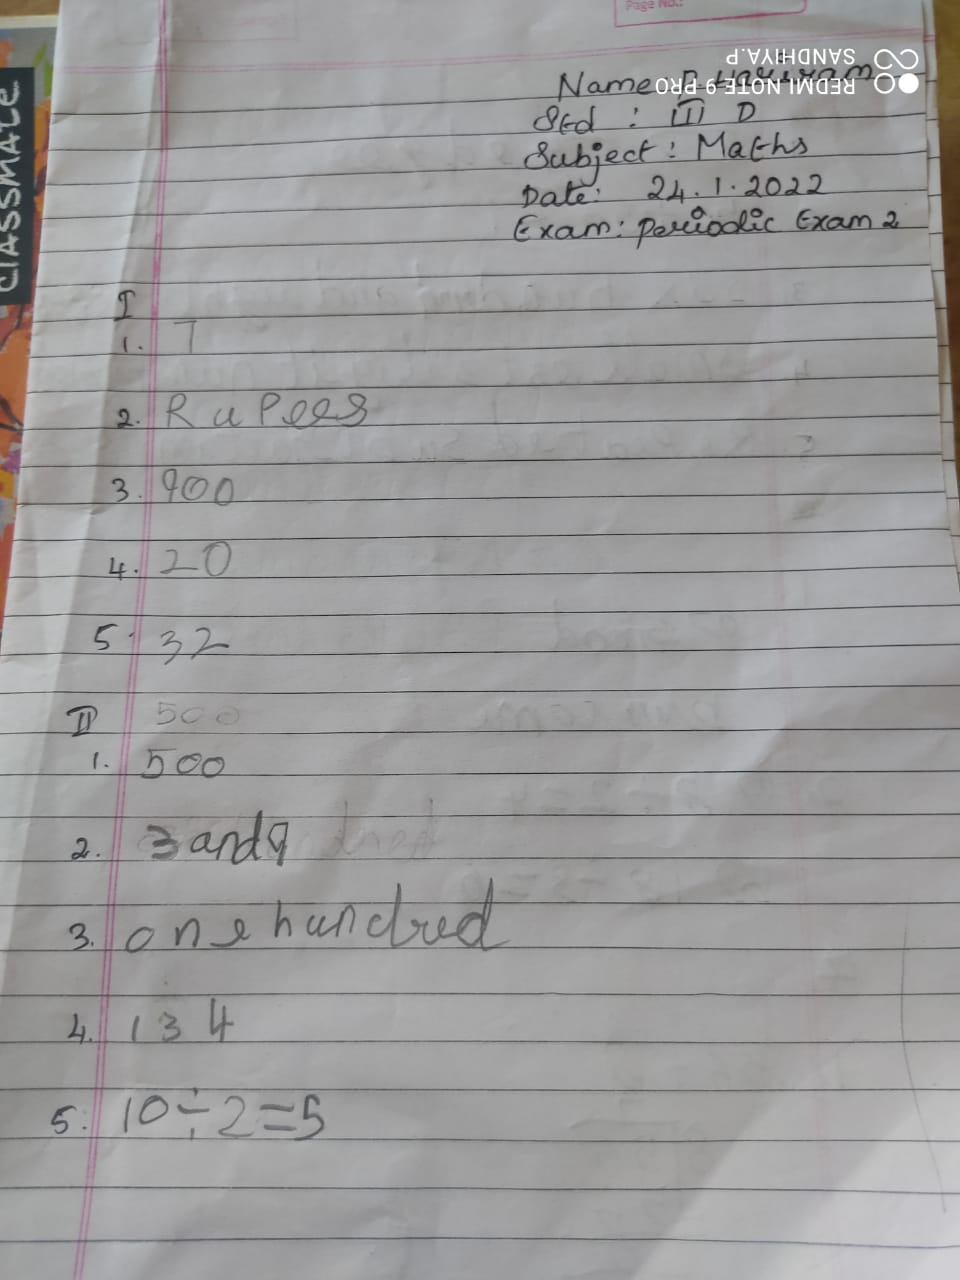 Page No.:
SANDHIYA.P
REDMI NOTE 9 PRO
CLASSMATE
Name: P Hariram
Std : III D
Subject : Maths
Date: 24.1.2022
Exam: Periodic Exam 2
I
1. T
2. RuPees
3. 900
4. 20
5. 32
II 500
1. 500
2. 3 and 9
3. one hundred
4. 134
5. 10÷2=5